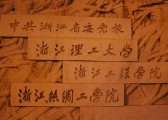 中共浙江省委党校
浙江理工大学
浙江工程学院
浙江丝绸工学院